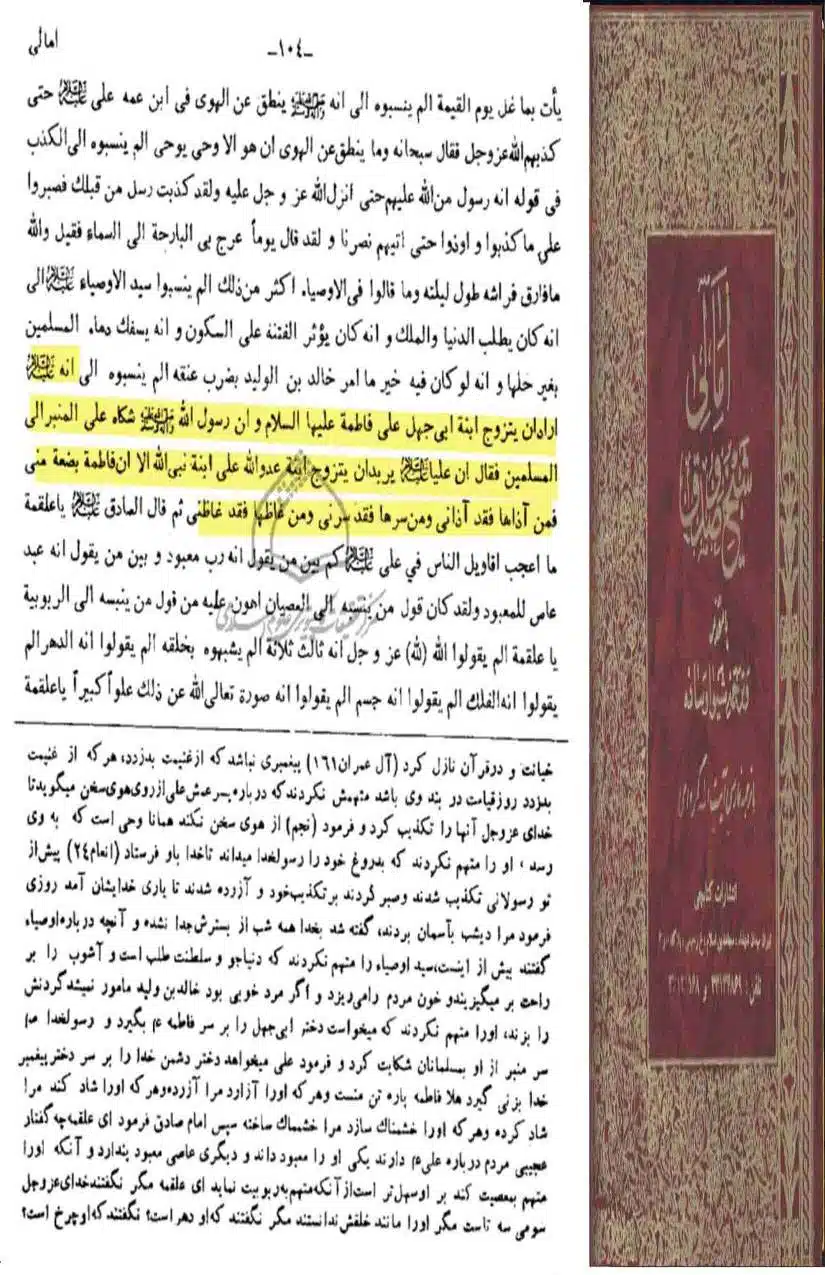 -١٠٤-
امالی
یأت بما غل یوم القیمة الم ینسبوه الی انه ﷺ ینطق عن الهوی فی ابن عمه علی علیه‌السلام حتی
کذبهم‌الله‌عزوجل فقال سبحانه وما ینطق‌عن الهوی ان هو الا وحی یوحی الم ینسبوه الی‌الکذب
فی قوله انه رسول من‌الله علیهم‌حتی انزل‌الله عز و جل علیه ولقد کذبت رسل من قبلك فصبروا
علی ما کذبوا و اوذوا حتی اتیهم نصرنا و لقد قال یوماً عرج بی البارحة الی السماء فقیل والله
مافارق فراشه طول لیلته وما قالوا فی‌الاوصیاء اکثر من‌ذلك الم ینسبوا سید الاوصیاء علیه‌السلام الی
انه کان یطلب الدنیا والملك و انه کان یؤثر الفتنة علی السکون و انه یسفك دماء المسلمین
بغیر حلها و انه لو کان فیه خیر ما امر خالد بن الولید بضرب عنقه الم ینسبوه الی انه علیه‌السلام
ارادان یتزوج ابنة ابی‌جهل علی فاطمة علیها السلام و ان رسول الله ﷺ شکاه علی المنبر الی
المسلمین فقال ان علیا علیه‌السلام یریدان یتزوج ابنة عدوالله علی ابنة نبی‌الله الا ان‌فاطمة بضعة منی
فمن آذاها فقد آذانی ومن‌سرها فقد سرنی ومن غاظها فقد غاظنی ثم قال الصادق علیه‌السلام یاعلقمة
ما اعجب اقاویل الناس في علی علیه‌السلام کم بین من یقول انه رب معبود و بین من یقول انه عبد
عاص للمعبود ولقد کان قول من ینسبه الی العصیان اهون علیه من قول من ینسبه الی الربوبیة
یا علقمة الم یقولوا الله (لله) عز و جل انه ثالث ثلاثة الم یشبهوه بخلقه الم یقولوا انه الدهر الم
یقولوا انه‌الفلك الم یقولوا انه جسم الم یقولوا انه صورة تعالی‌الله عن ذلك علواً کبیراً یاعلقمة
خیانت و درقرآن نازل کرد (آل عمران۱۶۱) پیغمبری نباشد که ازغنیمت بدزدد، هرکه از غنیمت
بدزدد روزقیامت در بند وی باشد متهمش نکردندکه درباره‌پسرعمش‌علی‌ازروی‌هوی‌سخن میگویدتا
خدای عزوجل آنها را تکذیب کرد و فرمود (نجم) از هوی سخن نکند همانا وحی است که به وی
رسد، او را متهم نکردند که بدروغ خود را رسولخدا میداند تاخدا باو فرستاد (انعام۲۴) پیش‌از
تو رسولانی تکذیب شدند وصبر کردند برتکذیب‌خود و آزرده شدند تا یاری خدایشان آمد روزی
فرمود مرا دیشب بآسمان بردند، گفته شد بخدا همه شب از بسترش‌جدا نشده و آنچه درباره‌اوصیاء
گفتند بیش از اینست،سید اوصیاء را متهم نکردند که دنیاجو و سلطنت طلب است و آشوب را بر
راحت بر میگیزیندو خون مردم رامی‌ریزد و اگر مرد خوبی بود خالدبن ولید مامور نمیشدگردنش
را بزند، اورا متهم نکردند که میخواست دختر ابی‌جهل را بر سر فاطمه ع بگیرد و رسولخدا ص
سر منبر از او بمسلمانان شکایت کرد و فرمود علی میخواهد دختر دشمن خدا را بر سر دخترپیغمبر
خدا بزنی گیرد هلا فاطمه پاره تن منست وهر که اورا آزارد مرا آزرده‌وهرکه اورا شاد کند مرا
شاد کرده وهرکه اورا خشمناك سازد مرا خشمناك ساخته سپس امام صادق فرمود ای علقمه‌چه‌گفتار
عجیبی مردم درباره علی‌ع دارند یکی او را معبود داند و دیگری عاصی معبود پندارد و آنکه اورا
متهم بمعصیت کند بر اوسهل‌تر است‌ازآنکه‌متهم‌به‌ربوبیت نماید ای علقمه مگر نگفتندخدای‌عزوجل
سومی سه تاست مگر اورا مانند خلقش‌ندانستند مگر نگفتند که‌او دهراست؟ نگفتند که‌اوچرخ است؟
امالی
شیخ صدوق
انتشارات کتابچی